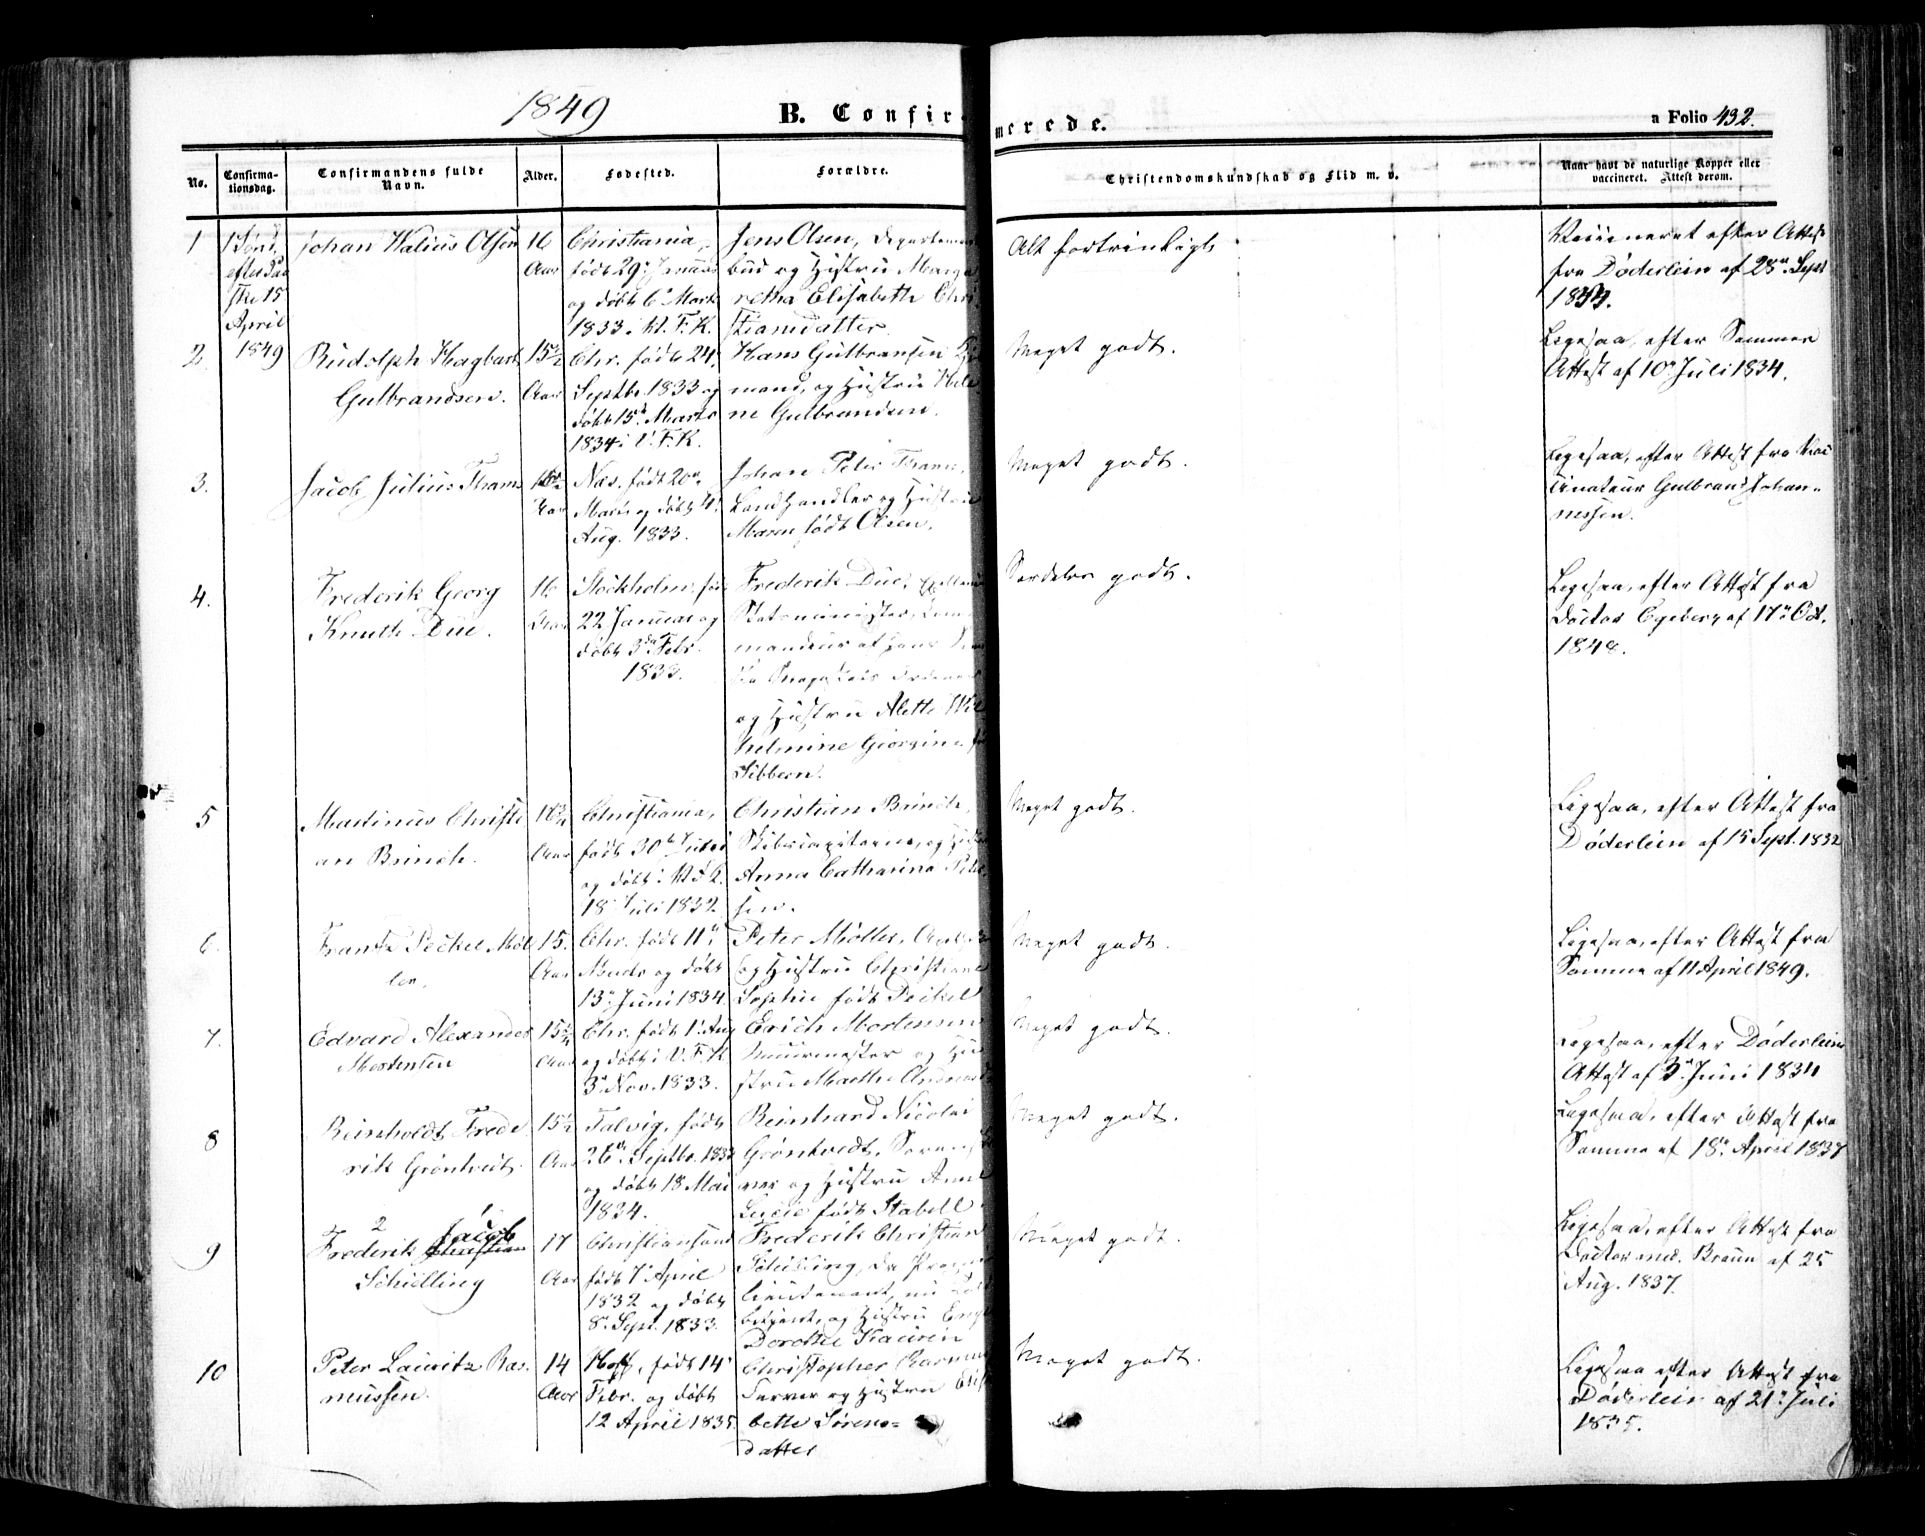 1849
B. Confirmerede.
a Folio 432.
No.
Confirma-
tionsdag.
Confirmandens fulde
Navn.
Alder.
Fødested.
Forældre.
Christendomskundskab og Flid m. v.
Naar havt de naturlige Kopper eller
vaccineret. Attest derom.
1
1 Sønd.
efter Paa
ske 15
April
1849
Johan Walius Olsen
16
Aar
Christiania,
født 29 Januar
og døbt 6 Marts
1833 i V. F. K.
Jens Olsen, Departements
bud og Hustru Marga
retha Elisabeth Chri
stiansdatter.
Alt fortrinligt
Vaccineret efter Attest
fra Døderlein af 28 Sept
1833.
2
Rudolph Hagbart
Gulbrandsen.
15½
Aar
Chr. født 24
Septbr. 1833 og
døbt 15 Marts
1834 i V. F. K.
Hans Gulbransen
mand, og Hustru Hele
ne Gulbrandsen.
Meget godt.
Ligesaa, efter Samme
Attest af 10 Juli 1834.
3.
Jacob Julius Thams
Aar
Næs. født 20
Marts og døbt 4
Aug. 1833.
Johan Peter Thams,
Landhandler og Hustru
Maren født Olsen.
Meget godt.
Ligesaa, efter Attest fra Vac
cinateur Gulbrand Johan-
nessen.
4.
Frederik Georg
Knuth Due.
16
Aar
Stockholm, fød
22 Januar og
døbt 3de Febr.
1833.
Frederik Due, Excellence
Statsminister, Com
mandeur af Hans
Majestæts Ordener
og Hustru Alette Wil
helmine Georgine fø
Sibbern.
Særdeles godt.
Ligesaa, efter Attest fra
Doctor Egeberg af 17 Oct.
1848.
5
Martinus Christi
an Brinch.
16¾
Aar
Christiania,
født 30 Juni
og døbt i
18 Juli 1832
Christian Brinch,
Skibscapitaine, og Hustru
Anna Catharina Peter
sen.
Meget godt.
Ligesaa, efter Attest fra
Døderlein af 15 Sept. 1832
6.
Frantz Peckel Møl
ler.
15.
Aar
Chr. født 11
Marts og døbt
13 Juni 1834.
Peter Møller,
og Hustru Christiane
Sophie født Peckel
Meget godt.
Ligesaa, efter Attest fra
Samme af 11 April 1849.
7.
Edvard Alexander
Mortensen
15½
Aar
Chr. født 1 Aug
og døbt i V. F. K
3 Nov. 1833.
Erich Mortensen
Muurmester og Hu
stru Marthe
Meget godt.
Ligesaa, efter Døderleins
Attest af 3 Juni 1834
8
Reinholdt Frede
rik Grøntvedt.
15½
Aar
Talvig, født
26 Septbr. 1833
og døbt 18 Mai
1834.
Reinhard Nicolai
Grøntvedt, Sorenskri
ver og Hustru Anne
Lucie født Stabell
Meget godt.
Ligesaa, efter Attest fra
Samme af 18 April 1837
9
2 1
Frederik Jacob
Christian
Schilling
17
Aar
Christiansand
født 7 April
1832 og døbt
8 Sept. 1833.
Frederik Christian
Schilling, da Premier
lieutenant, nu Told
betjent, og Hustru
Dorothe Kaurin
Meget godt.
Ligesaa, efter Attest fra
Doctor med. Bruun af 25
Aug. 1837.
10
Peter Lauritz Ras
mussen.
14
Aar
Hoff, født 14
Febr. og døbt
12 April 1835.
Christopher Rasmus
Farver og Hustru Elisa
bette Sørens-
datter
Meget godt.
Ligesaa efter Attest fra
Døderlein af 21 Juli
1835.